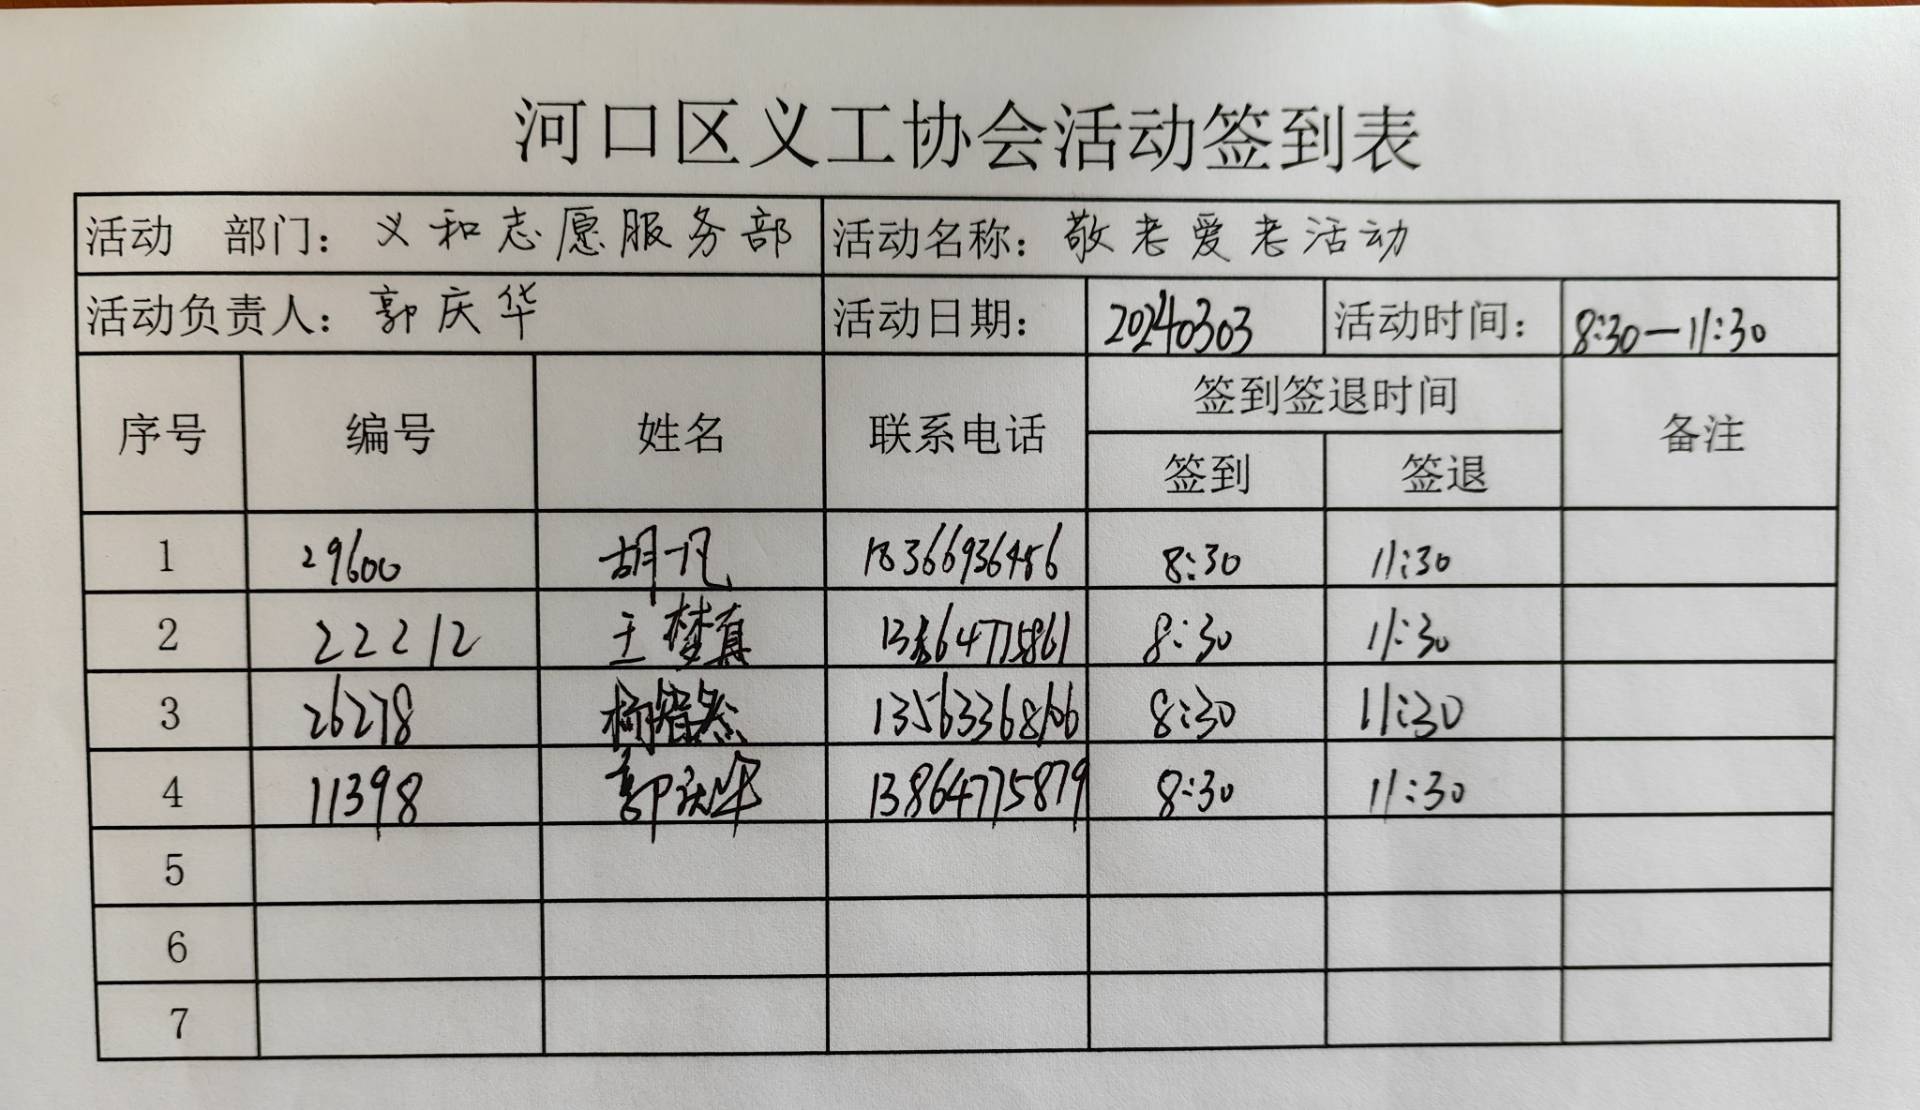 河口区义工协会活动签到表
活动 部门：义和志愿服务部 活动名称：敬老爱老活动
活动负责人：郭庆华 活动日期： 20240303 活动时间： 8:30—11:30
序号 编号 姓名 联系电话 签到签退时间 备注
签到 签退
1 29600 胡凡 18366936456 8:30 11:30
2 22212 王梦真 13864775861 8:30 11:30
3 26278 8:30 11:30
4 11398 郭庆华 13864775879 8:30 11:30
5
6
7